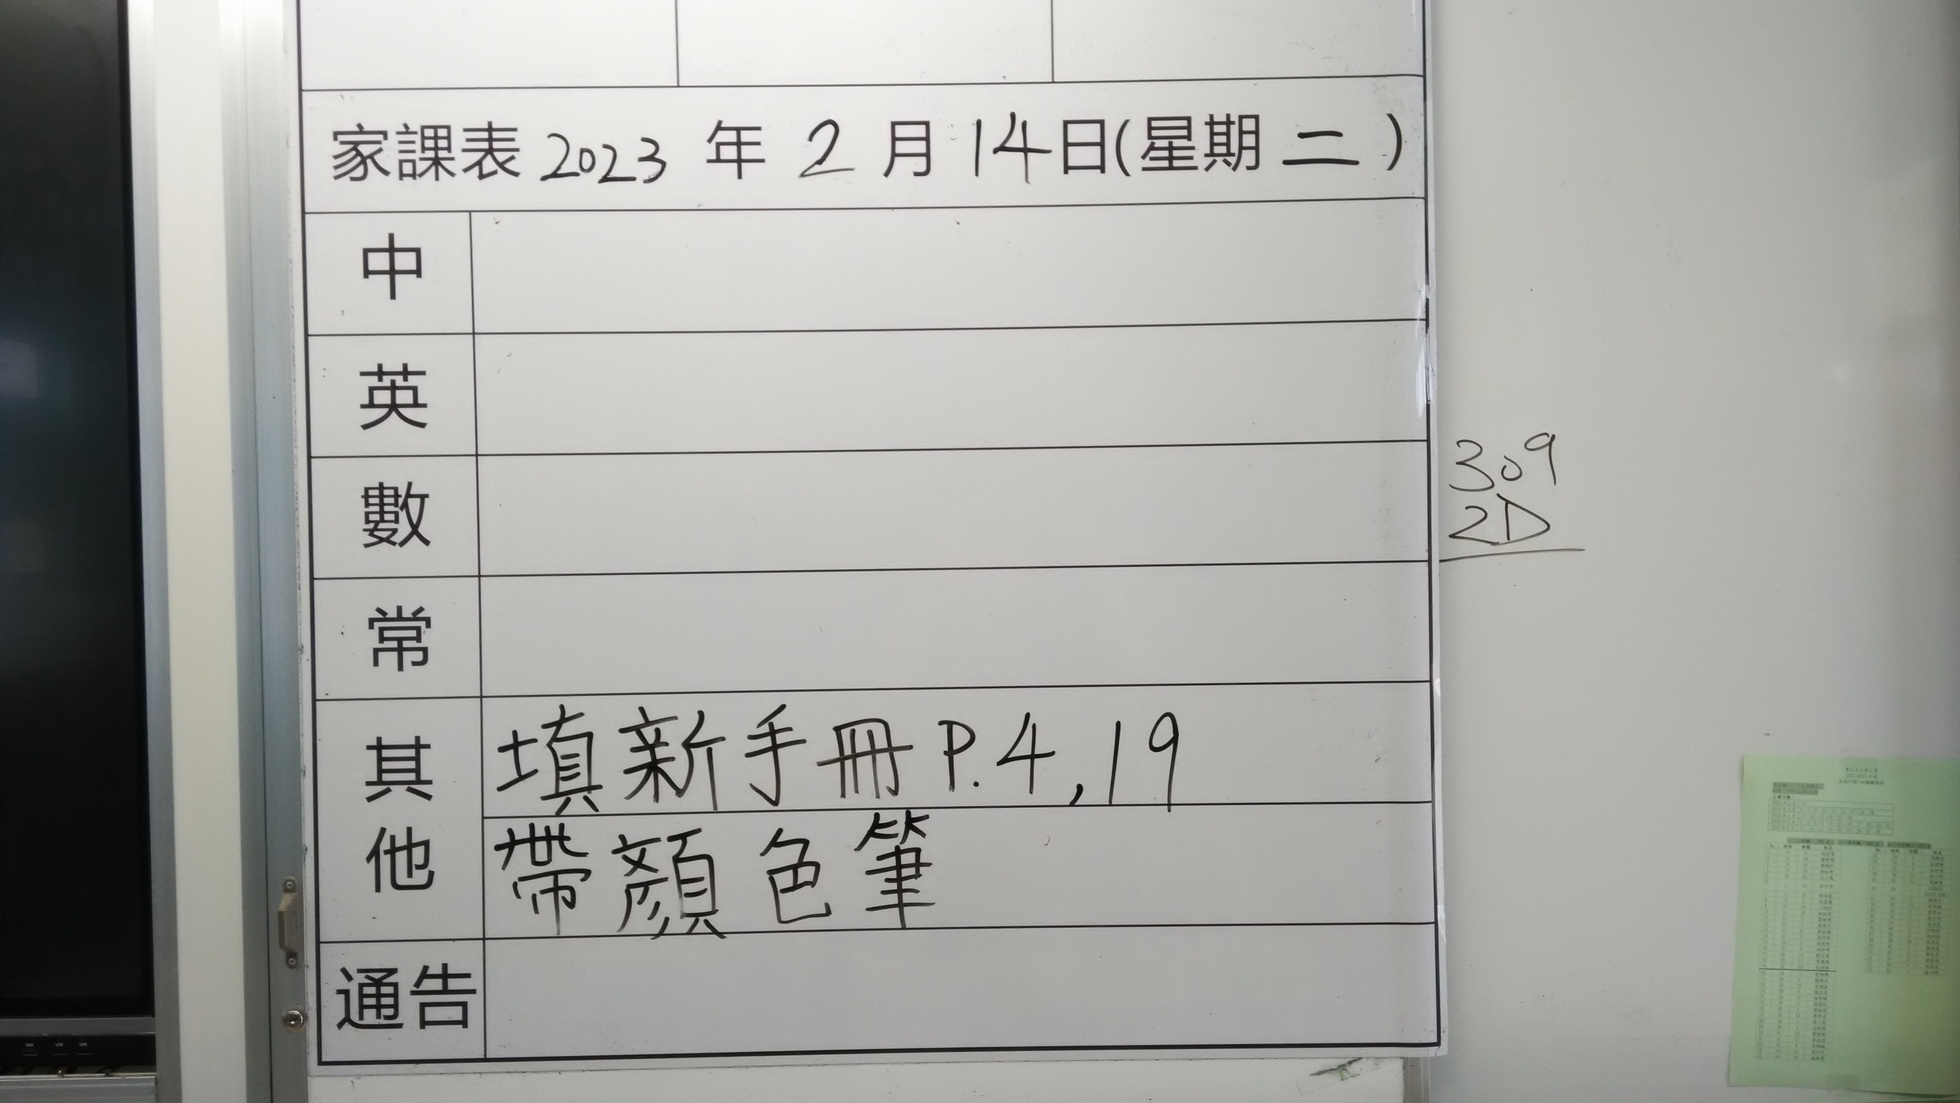 家課表 2023 年 2 月 14 日(星期 二 )
中
英
309
數
2D
常
其他
填新手冊 P.4,19
帶顏色筆
通告